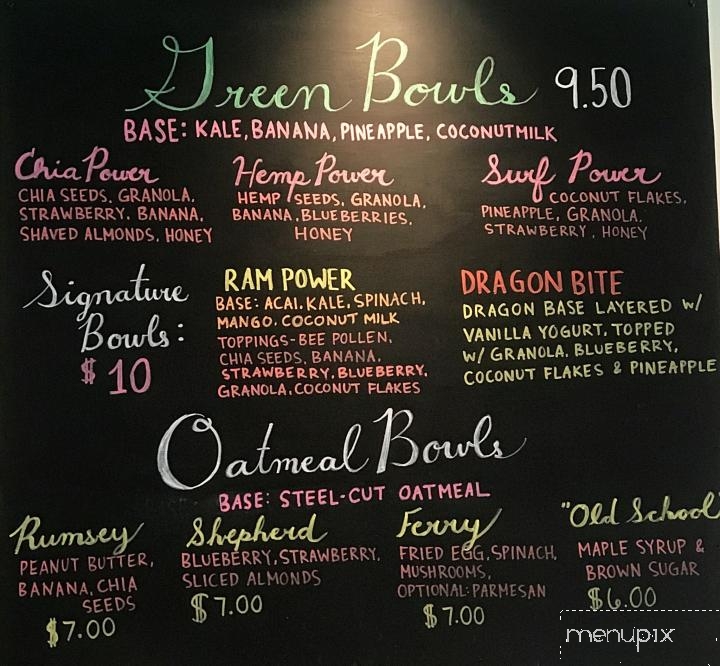 Green Bowls 9.50
BASE: KALE, BANANA, PINEAPPLE, COCONUTMILK
Chia Power
CHIA SEEDS, GRANOLA,
STRAWBERRY, BANANA,
SHAVED ALMONDS, HONEY
Hemp Power
HEMP SEEDS, GRANOLA,
BANANA, BLUEBERRIES,
HONEY
Surf Power
COCONUT FLAKES,
PINEAPPLE, GRANOLA,
STRAWBERRY, HONEY
Signature
Bowls:
$10
RAM POWER
BASE: ACAI, KALE, SPINACH,
MANGO, COCONUT MILK
TOPPINGS-BEE POLLEN,
CHIA SEEDS, BANANA,
STRAWBERRY, BLUEBERRY,
GRANOLA, COCONUT FLAKES
DRAGON BITE
DRAGON BASE LAYERED W/
VANILLA YOGURT, TOPPED
W/ GRANOLA, BLUEBERRY,
COCONUT FLAKES & PINEAPPLE
Oatmeal Bowls
BASE: STEEL-CUT OATMEAL
Rumsey
PEANUT BUTTER,
BANANA, CHIA
SEEDS
$7.00
Shepherd
BLUEBERRY, STRAWBERRY,
SLICED ALMONDS
$7.00
Ferry
FRIED EGG, SPINACH,
MUSHROOMS,
OPTIONAL: PARMESAN
$7.00
"Old School
MAPLE SYRUP &
BROWN SUGAR
$6.00
menupix